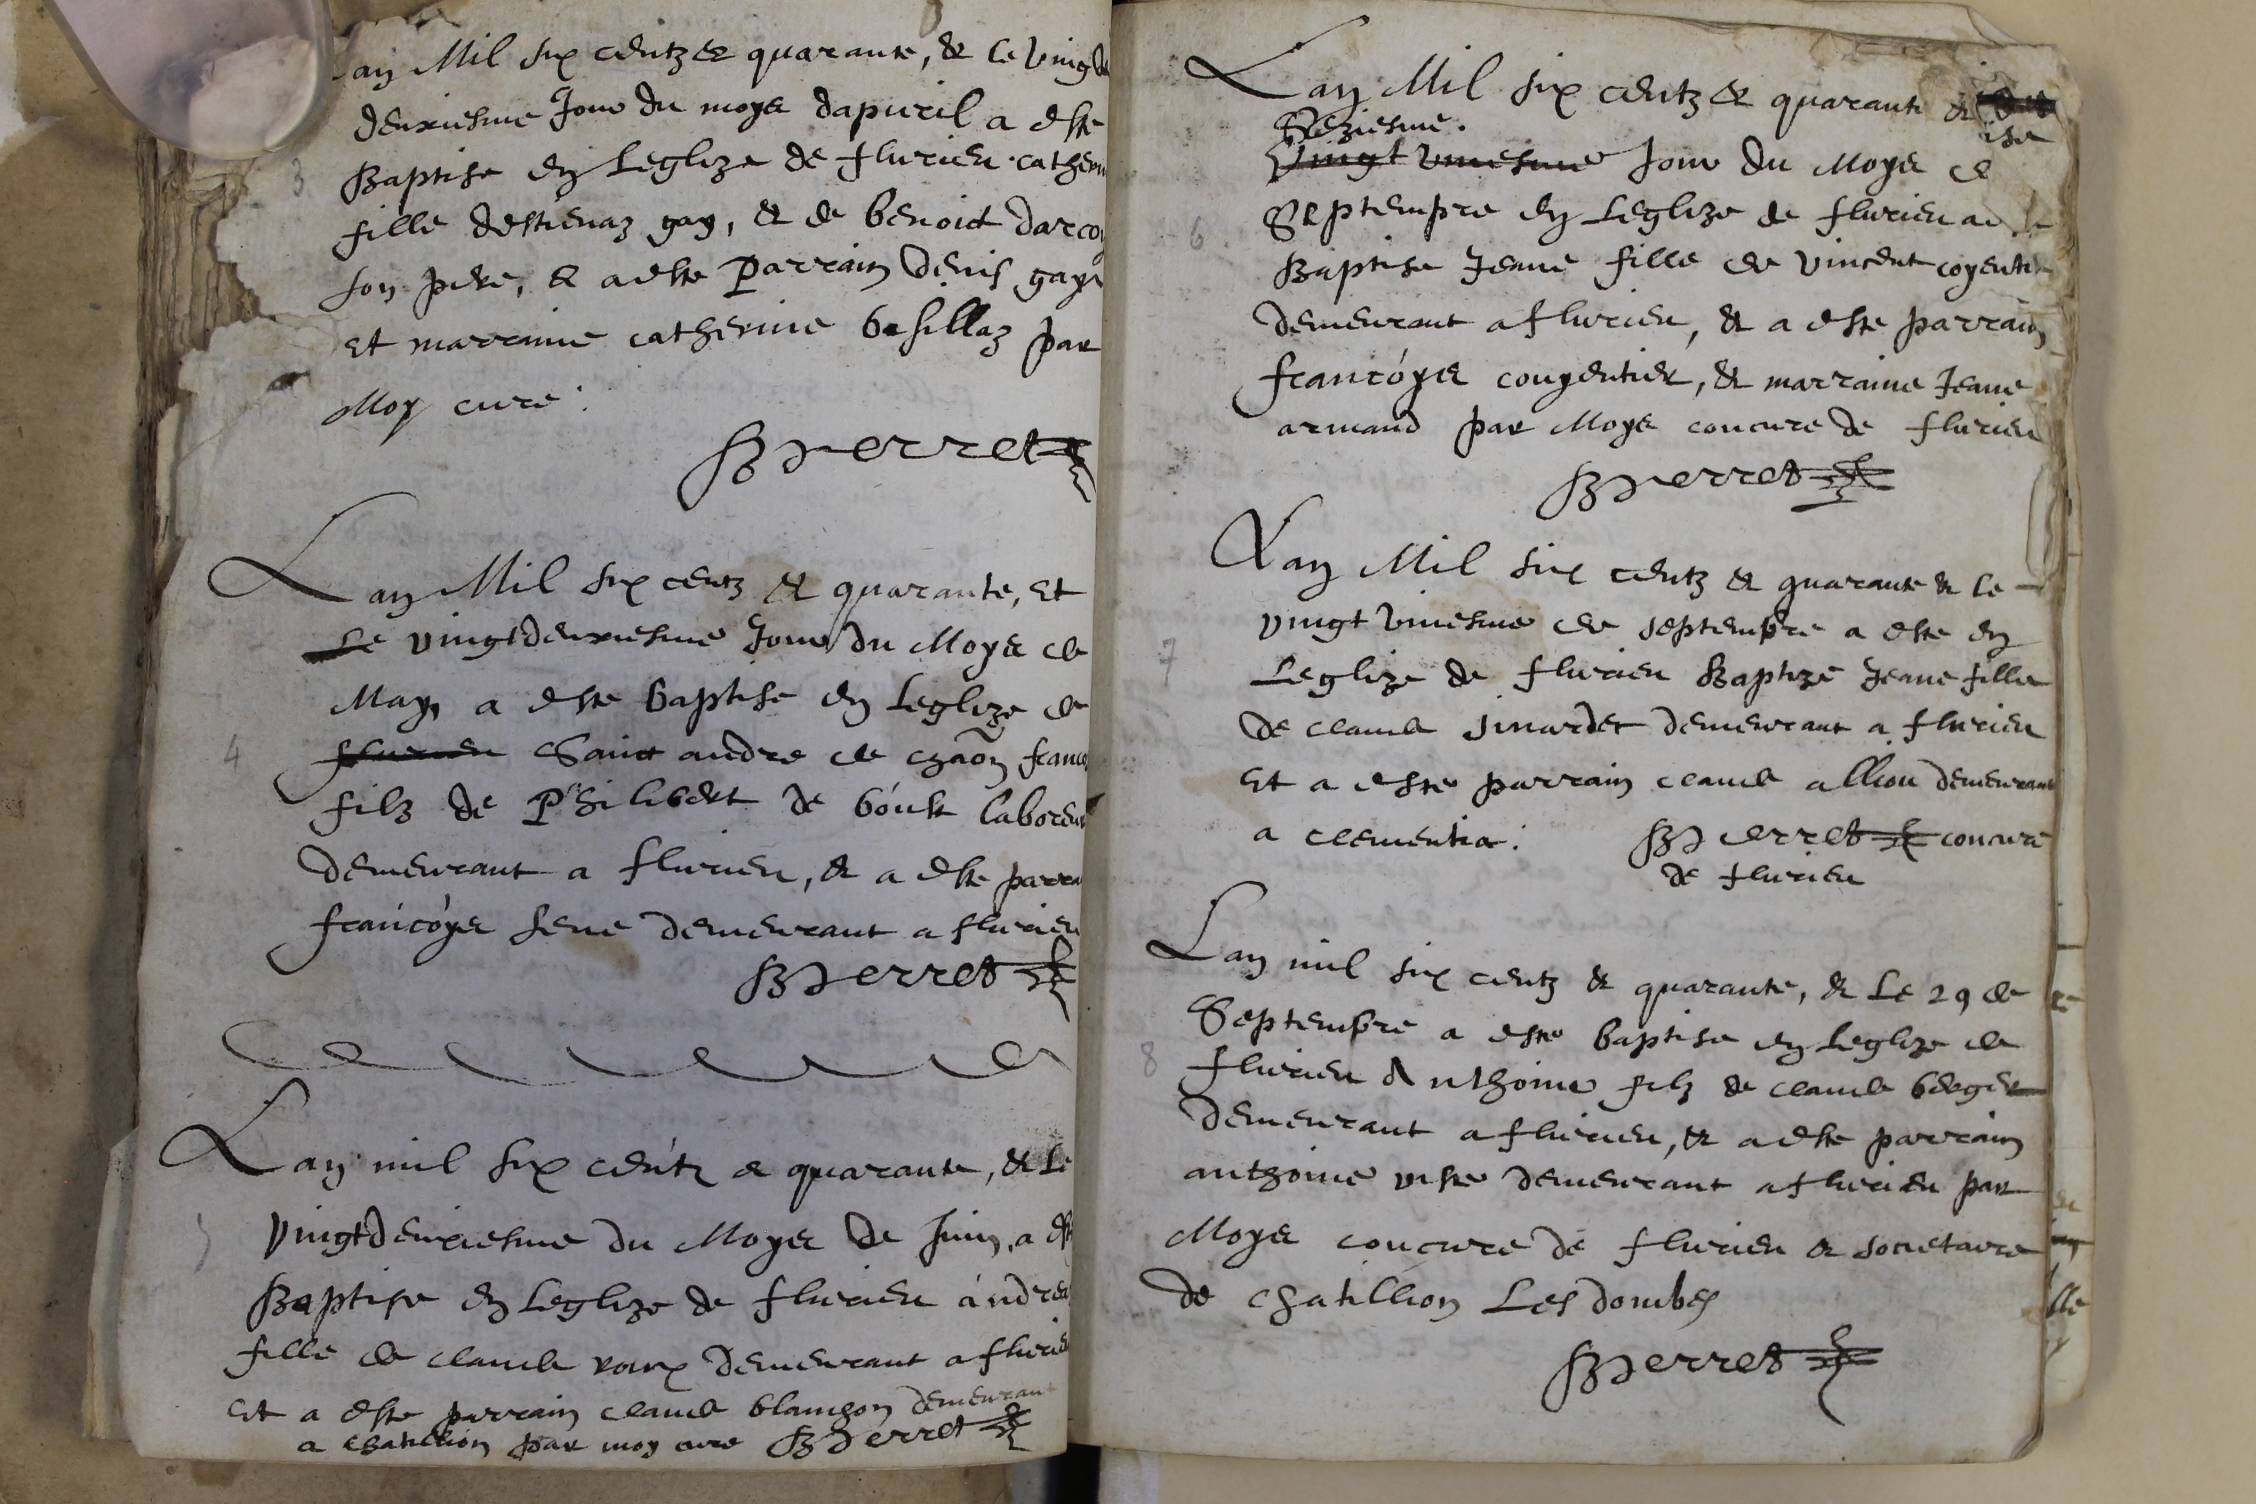 Lan Mil six centz et quarante, et le vingt
deuxiesme Jour du moys dapuril a este
3
Baptise en Leglize de flurieu catheri
fille destienaz gay, et de benoict darcoy
son pere, et a este Parrain denis gay
Et marraine catherine basillaz par
Moy cure :
B Perret
Lan Mil six centz et quarante, Et
Le vingtdeuxiesme Jour du Moys de
May a este baptise en Leglize de
4
flurieu Sainct andre de chaon franco
filz de Philibert de boust laboreur
demeurant a flurieu, et a este parra
francoys sene demeurant a flurieu
B Perret
Lan mil six centz et quarante, et Le
5
vingtdeuxiesme du Moys de Juin, a est
Baptise en Leglize de flurieu andrea
fille de claude roux demeurant a flurieu
Et a este parrain claude blanchon demeurant
a chatillion par moy cure B Perret
Lan Mil six centz et quarante et
Seziesme.
vingt uniesme Jour du Moys de
6
Septempre en Leglize de flurieu a este
Baptise Jeane fille de vincent coyentier
demeurant a flurieu, et a este parrain
francoys couyentier, et marraine Jeane
armand par Moys concure de flurieu
B Perret
Lan Mil six centz et quarante et le
vingt uniesme de septempre a este en
7
Leglize de flurieu Baptize Jeane fille
de claude Jinardet demeurant a flurieu
Et a este parrain claude allion demeurant
a clementia : B Perret concure
de flurieu
Lan mil six centz et quarante, et Le 29 de
Septempre a este baptise en Leglize de
8
flurieu Anthoine filz de claude berger
demeurant a flurieu, et a este parrain
anthoine viste demeurant a flurieu par
Moys concure de flurieu et societaire
de chatillion Les dombes
B Perret